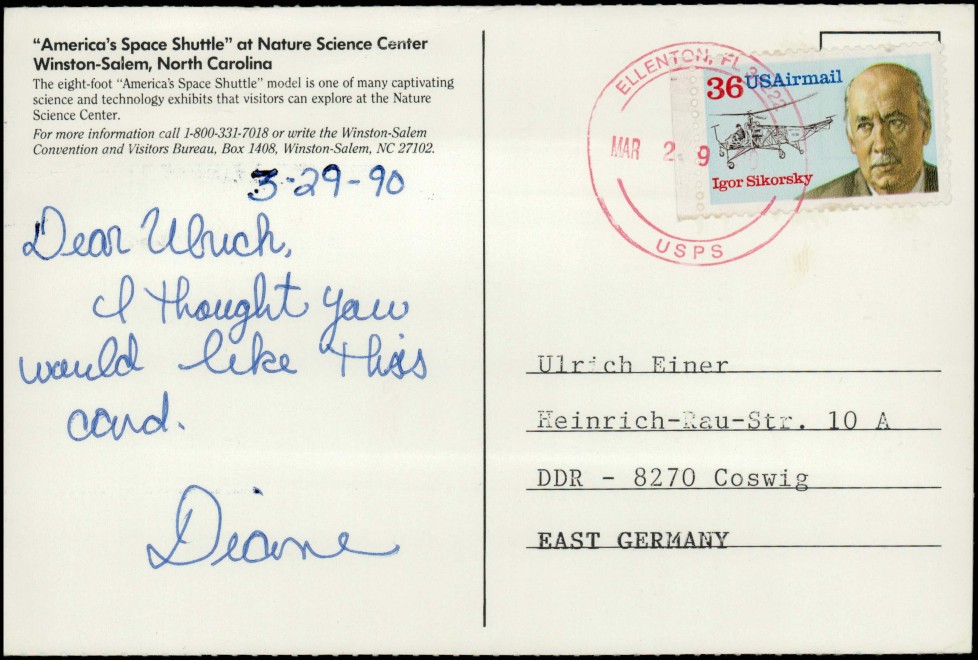 "America's Space Shuttle" at Nature Science Center
Winston-Salem, North Carolina
The eight-foot "America's Space Shuttle" model is one of many captivating
science and technology exhibits that visitors can explore at the Nature
Science Center.
For more information call 1-800-331-7018 or write the Winston-Salem
Convention and Visitors Bureau, Box 1408, Winston-Salem, NC 27102.
3-29-90
Dear Ulrich,
I thought you
would like this
card.
Diane
ELLENTON, FL
MAR 2 9
USPS
36 USAirmail
Igor Sikorsky
Ulrich Einer
Heinrich-Rau-Str. 10 A
DDR - 8270 Coswig
EAST GERMANY